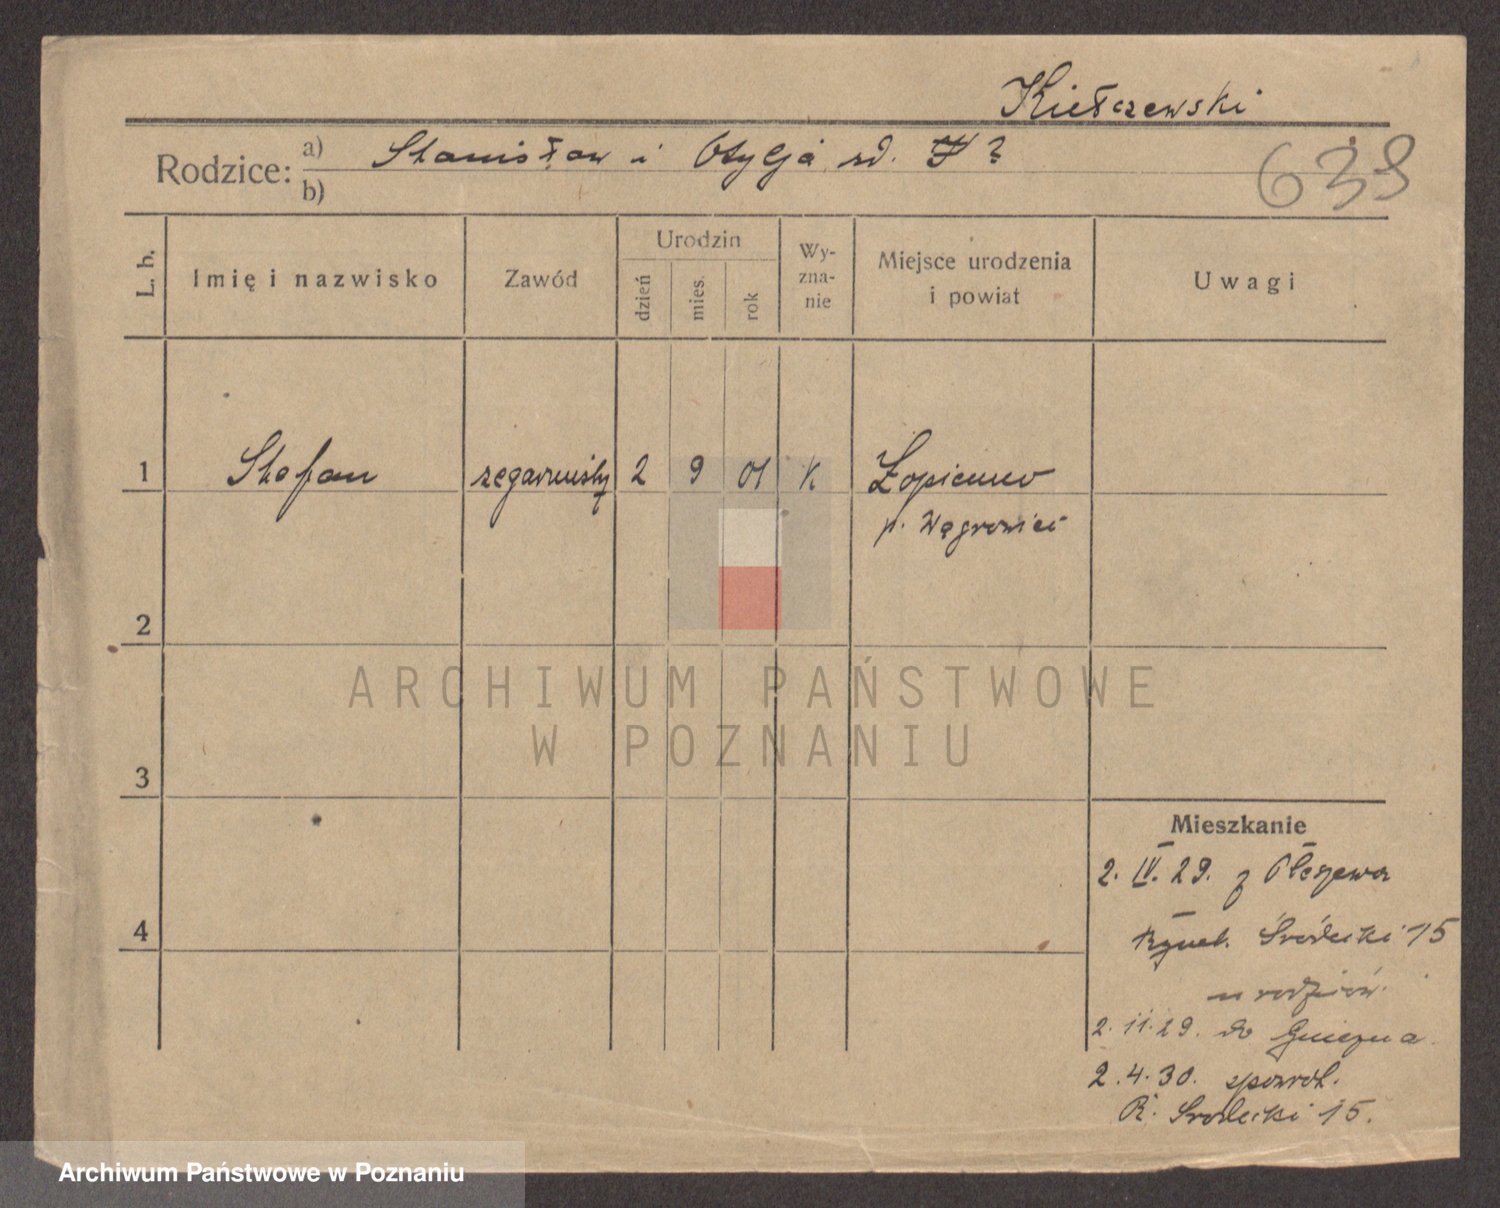 Kiełczewski
Rodzice: a) Stanisław i Otylja zd. ?
b)
639
L. b.
Imię i nazwisko
Zawód
Urodzin
dzień
mies.
rok
Wy-
zna-
nie
Miejsce urodzenia
i powiat
Uwagi
1 Stefan zegarmistrz 2 9 01 K Łopienno
p. Wągrowiec
2
3
4
ARCHIWUM PAŃSTWOWE
W POZNANIU
Mieszkanie
2. IV. 29. z Pleszewa
Rynek Śródecki 15
u rodziców.
2. 11. 29. do Gniezna.
2. 4. 30. zpowrot.
R. Srodecki 15.
Archiwum Państwowe w Poznaniu